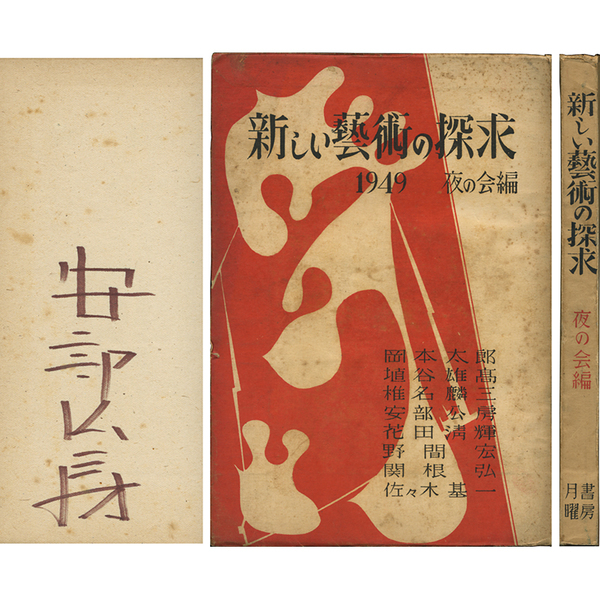 安部公房
新しい藝術の探求
1949 夜の会編
岡本太郎
埴谷雄高
椎名麟三
安部公房
花田清輝
野間宏
関根弘
佐々木基一
新しい藝術の探求
夜の会編
月曜書房